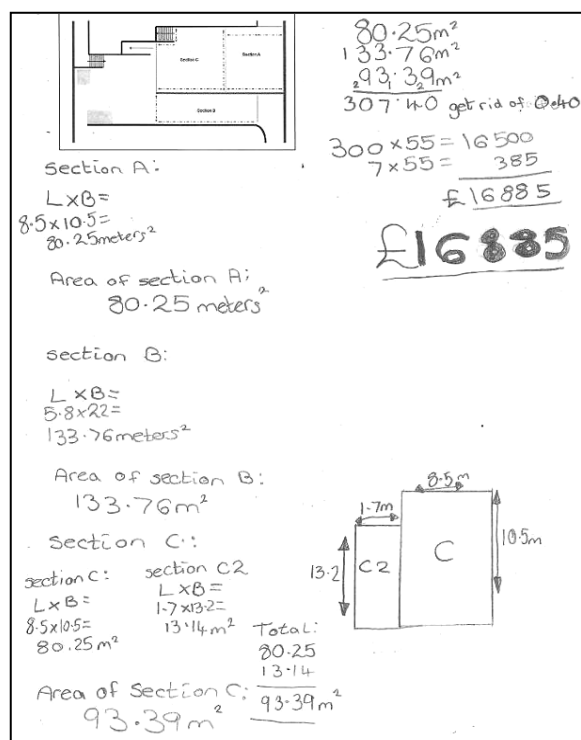 Section C
Section A
Section B
80.25m²
133.76m²
93.39m²
307.40 get rid of 0.40
300 x 55 = 16500
7 x 55 = 385
£16885
£16885
section A:
L x B =
8.5 x 10.5 =
80.25 meters²
Area of section A:
80.25 meters²
section B:
L x B =
5.8 x 22 =
133.76 meters²
Area of section B:
133.76m²
Section C:
section C:
L x B =
8.5 x 10.5 =
80.25m²
section C2
L x B =
1.7 x 13.2 =
13.14m²
Total:
80.25
13.14
93.39m²
Area of Section C:
93.39m²
8.5m
1.7m
10.5m
13.2
C2
C